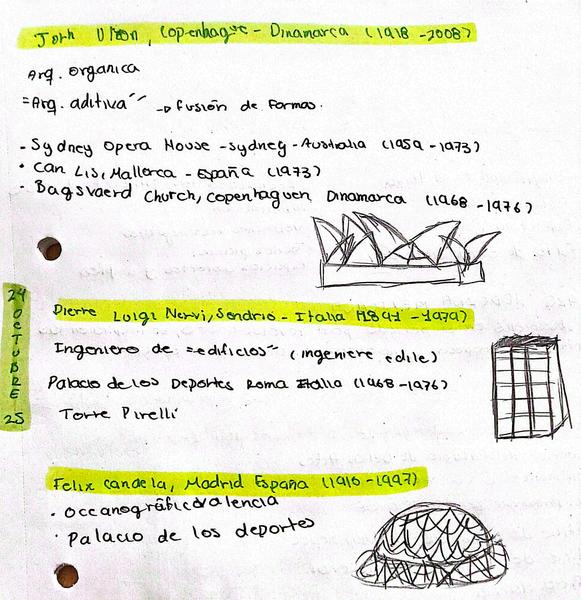 Jorh Utzon, Copenhague - Dinamarca (1918 - 2008)
Arq. organica
"Arq. aditiva" → fusión de formas.
- Sydney Opera House - sydney - Australia (1959 - 1973)
• Can Lis, Mallorca - España (1973)
- Bagsvaerd Church, Copenhaguen, Dinamarca (1968 - 1976)
24 OCTUBRE 25
Pierre Luigi Nervi, Sondrio - Italia (1891 - 1979)
Ingeniero de "edificios" (ingeniere edile)
Palacio de los Deportes Roma Italia (1968 - 1976)
Torre Pirelli
Felix candela, Madrid España (1910 - 1997)
• Occanográfico valencia
• Palacio de los deportes